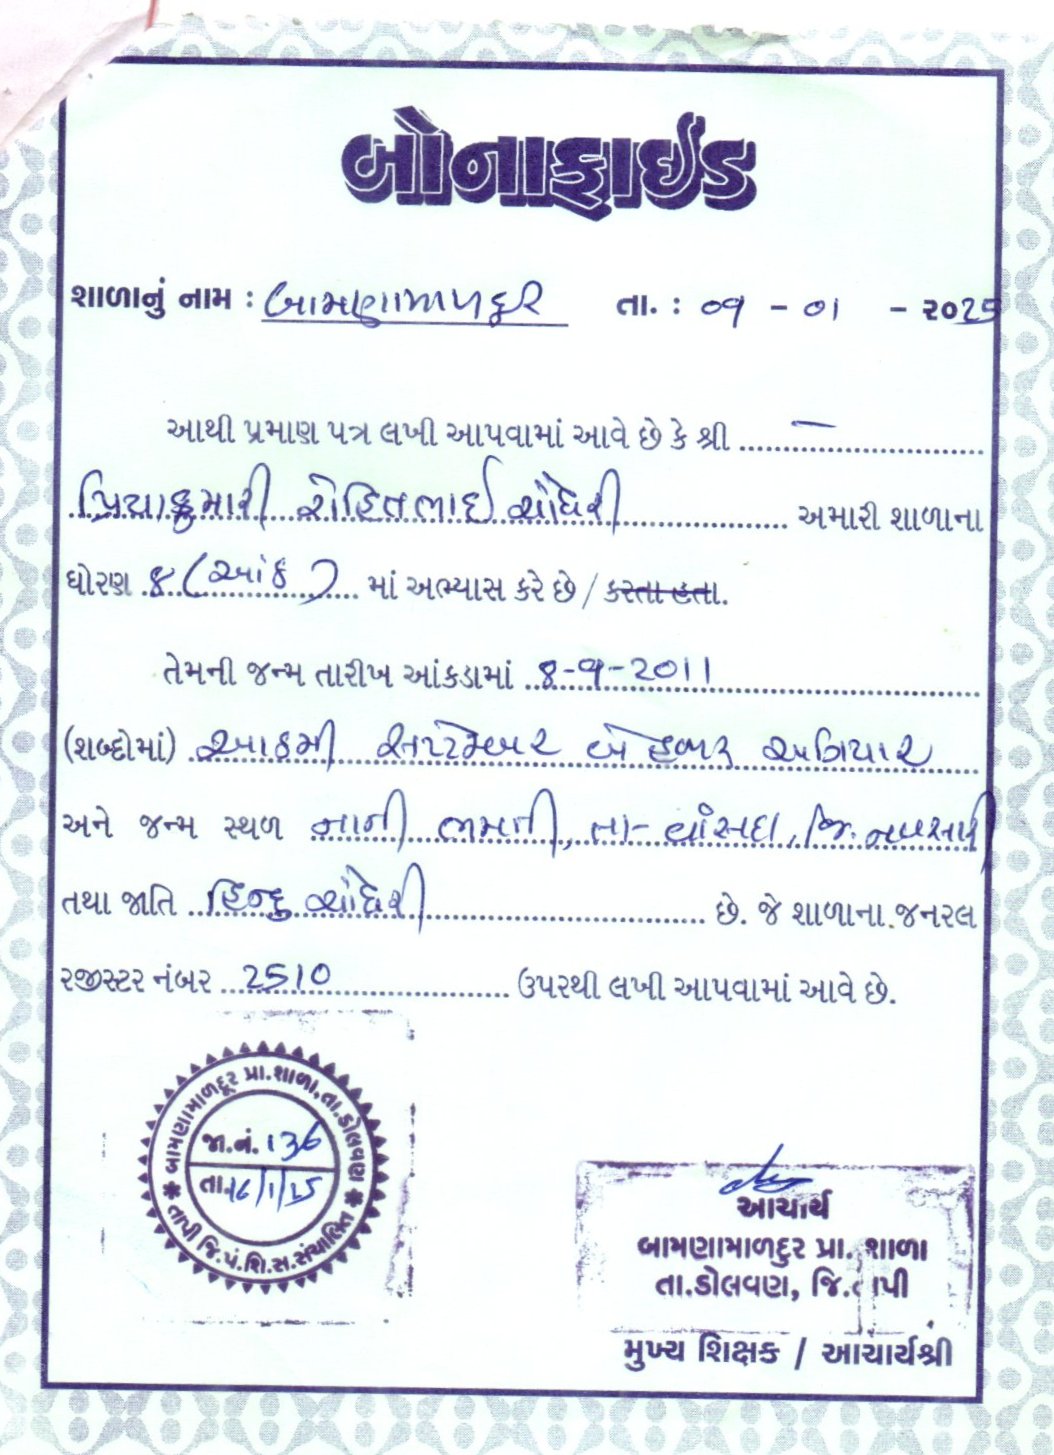 બોનાફાઈડ
શાળાનું નામ : બામણામાળદુર તા. : ૦૧ - ૦1 - ૨૦25
આથી પ્રમાણ પત્ર લખી આપવામાં આવે છે કે શ્રી —
પ્રિયાકુમારી રોહિતભાઈ ચૌધરી અમારી શાળાના
ધોરણ ૪ (આઠ) માં અભ્યાસ કરે છે / કરતા હતા.
તેમની જન્મ તારીખ આંકડામાં 8-9-2011
(શબ્દોમાં) આઠમી સપ્ટેમ્બર બે હજાર અગિયાર
અને જન્મ સ્થળ નાની ભમતી, તા- વાંસદા, જિ. નવસારી
તથા જાતિ હિન્દુ ચૌધરી છે. જે શાળાના જનરલ
રજીસ્ટર નંબર 2510 ઉપરથી લખી આપવામાં આવે છે.
બામણામાળદૂર પ્રા.શાળા, તા.ડોલવણ
જા.નં. 136
તા.16/1/25
તાપી જિ.પં.શિ.સ.સંચાલિત
આચાર્ય
બામણામાળદુર પ્રા. શાળા
તા.ડોલવણ, જિ.તાપી
મુખ્ય શિક્ષક / આચાર્યશ્રી